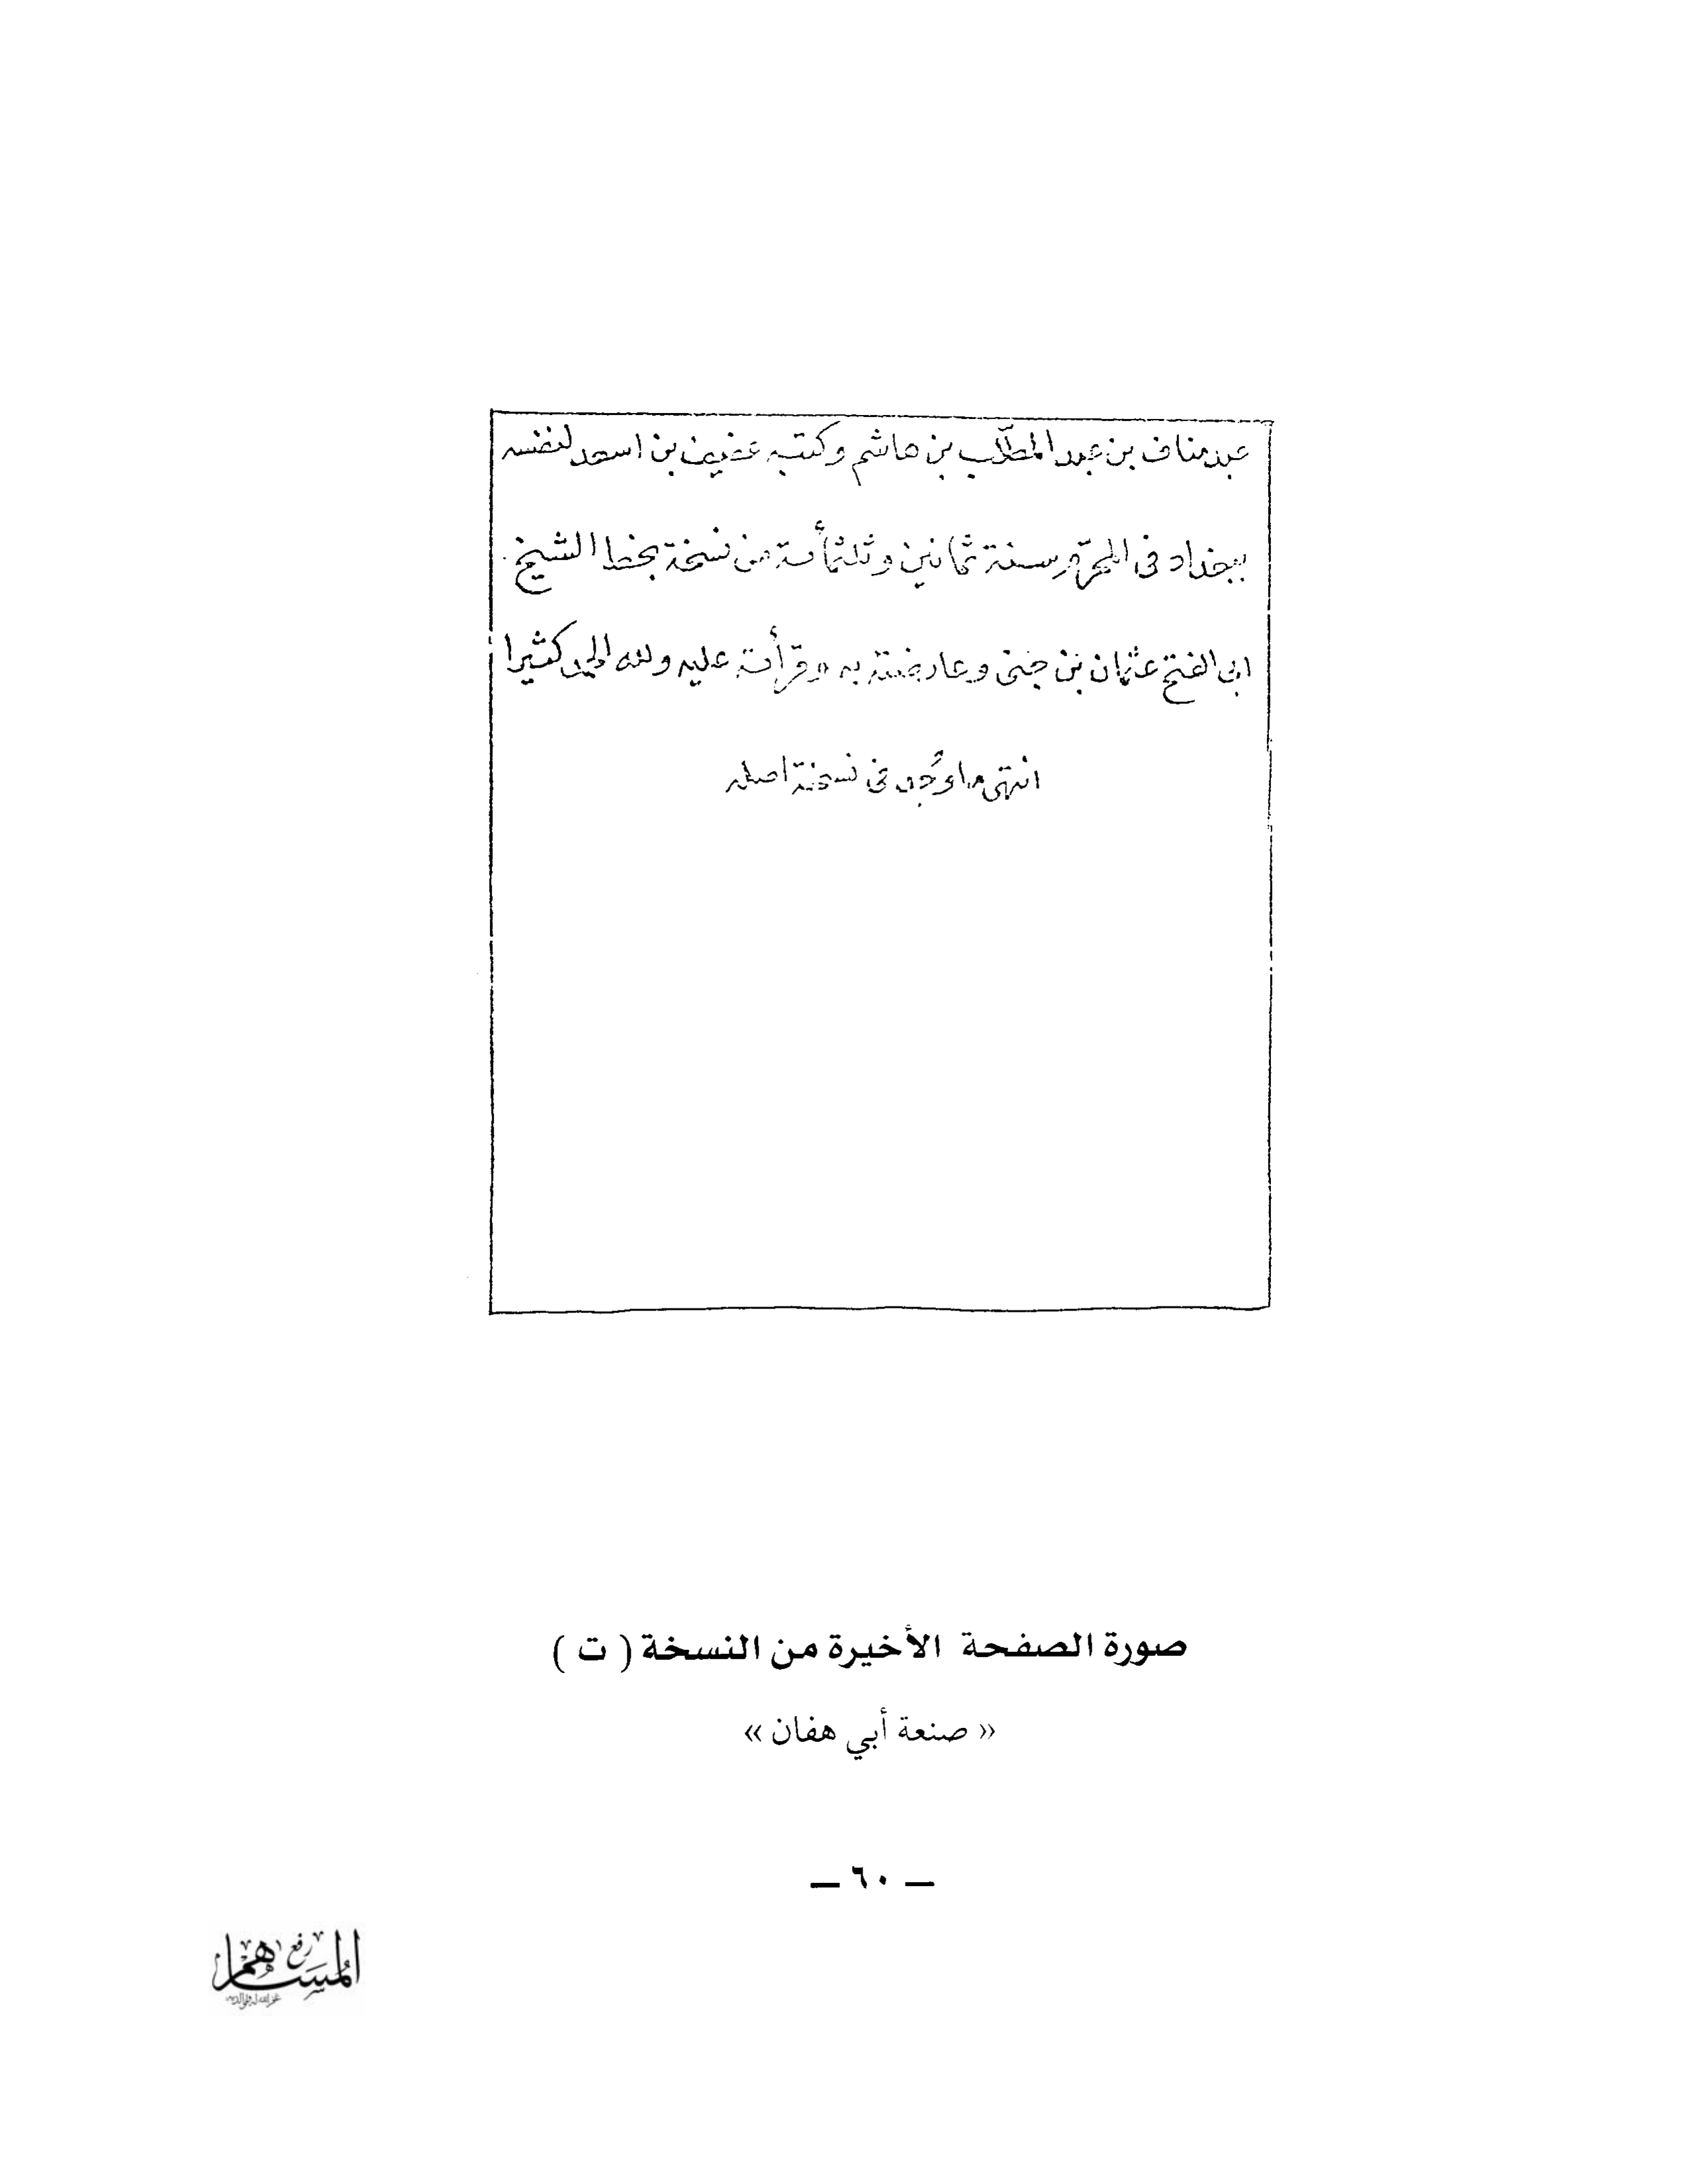 عبدمناف بن عبد المطلّب بن هاشم وكتبه عفيف بن اسعد لنفسه
ببغداد فى المحرّم سنة ثمانين وثلثمأة من نسخة بخط الشيخ
ابى الفتح عثمان بن جنى وعارضته به وقرأته عليه ولله الحمد كثيرا
انتهى ما وُجد فى نسخة اصله
صورة الصفحة الأخيرة من النسخة ( ت )
« صنعة أبي هفان »
— ٦٠ —
رفع
المساهم